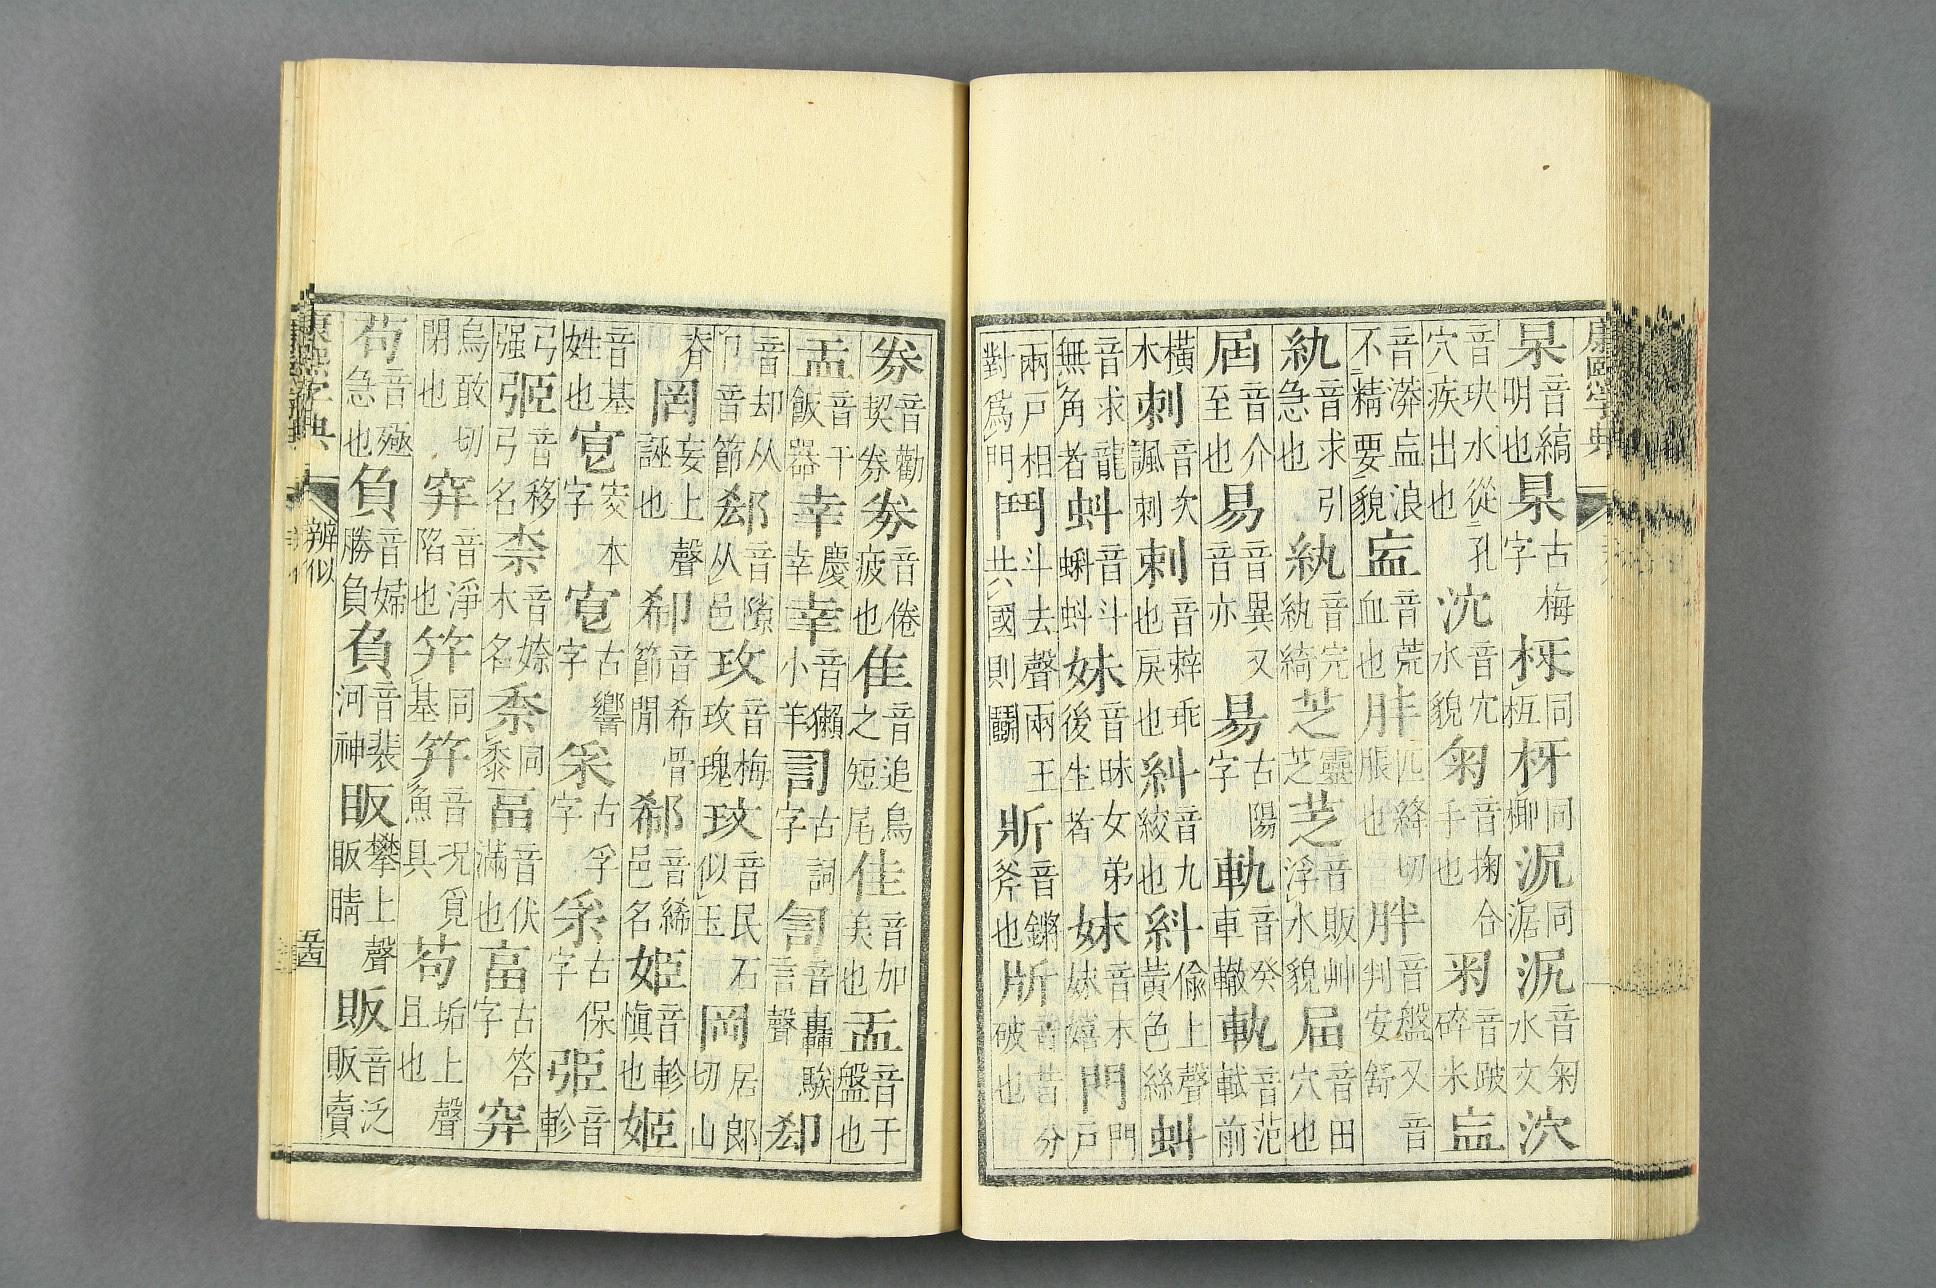 康熙字典
杲音縞明也杲古梅字枒同枑枒同椰沉同涺沉音匊水文泬
音玦水從孔穴疾出也沉音宂水貌匊音掬手也合匊音跛碎米衁
音漭衁浪不精要貌衁音荒血也胖匹絳切脹也胖音盤又音判安舒
紈音求引急也紈音完紈綺芝靈芝芝音販艸浮水貌屆音田穴也
屆音介至也易音異又音亦易古陽字軌音癸車轍軓音范軾前
橫木刺音次諷刺剌音辣乖也戾也糾音九絞也糾偷上聲黃色絲虯
音求龍無角者蚪音斗蝌蚪妹音昧女弟後生者妺音末妺嬉門音門戶
兩戶相對爲門鬥斗去聲兩王共國則鬭斨音鏘斧也斨音昔分破也
券音勸契券劵音倦疲也隹音追鳥之短尾佳音加美也盂音于盤也
盂音干飯器幸慶幸羍音獺小羊司古詞字訇音轟駭言聲却
音却从卩音節郤音隙从邑玫音梅玫瑰玟音民石似玉岡居郎切山
脊罔妄上聲誣也郗音希骨節閒郗音絺邑名姬音軫愼也姬
音基姓也宐安本字宐古響字采古孚字采古保字弫音軫
弓强弫音移弓名柰音㮈木名桼同黍畐音伏滿也畗古答字穽
烏敢切閉也穽音淨陷也笄同基笄音況覓魚具苟垢上聲且也
茍音亟急也負音婦勝負負音裴河神眅攀上聲眅睛販音泛販賣
康熙字典
辨似
五四